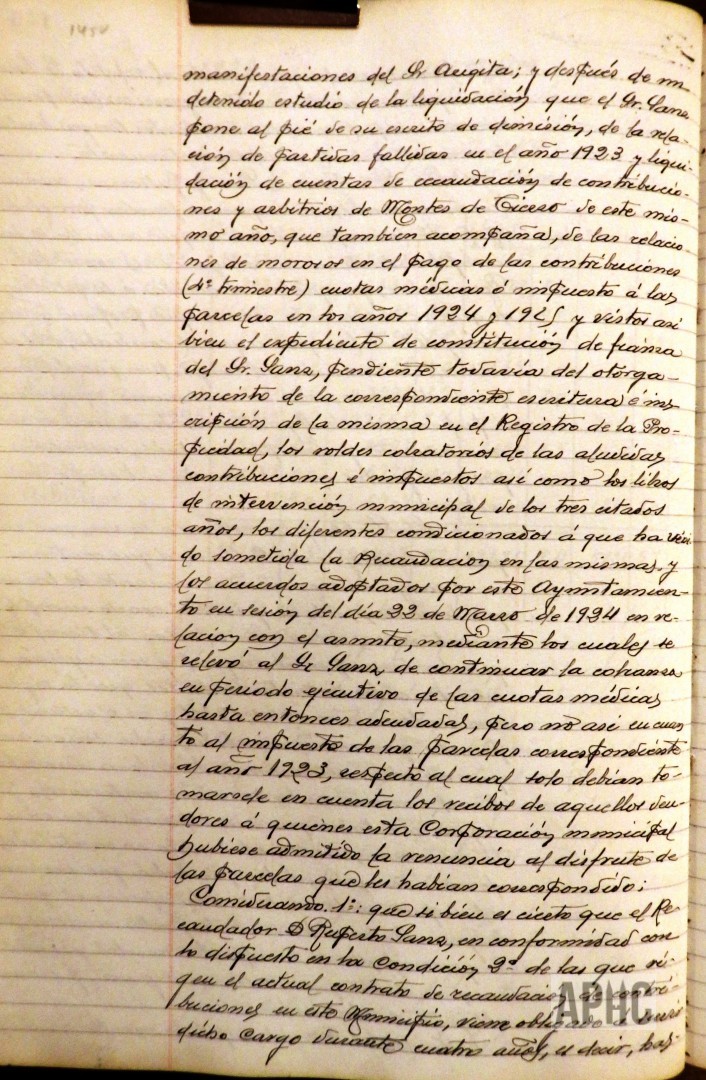 manifestaciones del Sr Angita; y después de un
detenido estudio de la liquidación que el Sr. Sanz
pone al pié de su escrito de dimisión, de la rela-
ción de partidas fallidas en el año 1923 y liqui-
dación de cuentas de recaudación de contribucio-
nes y arbitrios de Montes de Cicero de este mis-
mo año, que también acompaña, de las relacio-
nes de morosos en el pago de las contribuciones
(4º trimestre) cuotas médicas ó impuesto á las
parcelas en los años 1924 y 1925 y vistos asi
bien el expediente de constitución de fianza
del Sr. Sanz, pendiente todavía del otorga-
miento de la correspondiente escritura é ins-
cripción de la misma en el Registro de la Pro-
piedad, los roldes cobratorios de las aludidas
contribuciones é impuestos así como los libros
de intervención municipal de los tres citados
años, los diferentes condicionados á que ha veni-
do sometida la Recaudacion en las mismas y
los acuerdos adoptados por este Ayuntamien-
to en sesión del día 22 de Marzo de 1924 en re-
lacion con el asunto, mediante los cuales se
relevó al Sr Sanz de continuar la cobranza
en período ejecutivo de las cuotas médicas
hasta entonces adeudadas, pero no asi en cuan
to al impuesto de las parcelas correspondiente
al año 1923, respecto al cual solo debían to-
marsele en cuenta los recibos de aquellos deu-
dores á quienes esta Corporación municipal
hubiese admitido la renuncia al disfrute de
las parcelas que les habían correspondido;
Considerando. 1º: que si bien es cierto que el Re-
caudador D Ruperto Sanz, en conformidad con
lo dispuesto en la condición 2ª de las que ri-
gen el actual contrato de recaudación de contri-
buciones en este Municipio, viene obligado a servir
dicho cargo durante cuatro años, es decir, has-
APHC